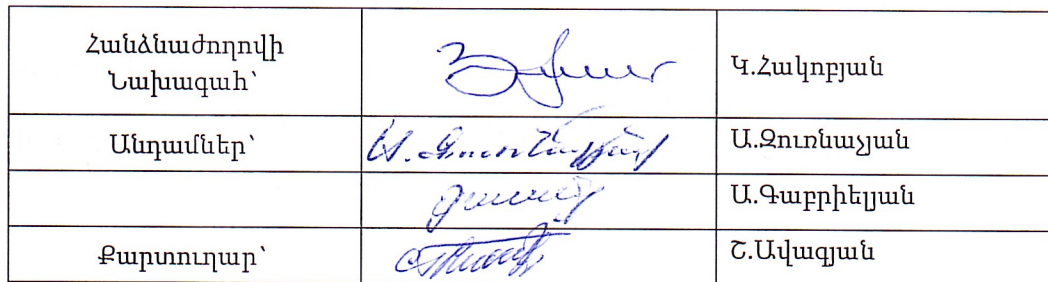 Հանձնաժողովի
Նախագահ՝
Կ.Հակոբյան
Անդամներ՝
Ա.Զուռնաչյան
Ա.Գաբրիելյան
Քարտուղար՝
Շ.Ավագյան